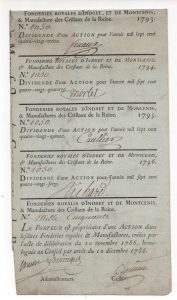 FONDERIES ROYALES D'INDRET ET DE MONTCENIS,
& Manufacture des Cristaux de la Reine. 1793.
N.º 1050.
DIVIDENDE d'une ACTION pour l'année mil sept cent
quatre-vingt-treize.
FONDERIES ROYALES D'INDRET ET DE MONTCENIS,
& Manufacture des Cristaux de la Reine. 1794.
N.º 1050.
DIVIDENDE d'une ACTION pour l'année mil sept cent
quatre-vingt-quatorze.
FONDERIES ROYALES D'INDRET ET DE MONTCENIS,
& Manufacture des Cristaux de la Reine. 1795.
N.º 1050.
DIVIDENDE d'une ACTION pour l'année mil sept cent
quatre-vingt-quinze.
FONDERIES ROYALES D'INDRET ET DE MONTCENIS,
& Manufacture des Cristaux de la Reine. 1796.
N.º 1050.
DIVIDENDE d'une ACTION pour l'année mil sept cent
quatre-vingt-seize.
Richard
FONDERIES ROYALES D'INDRET ET DE MONTCENIS,
& Manufacture des Cristaux de la Reine.
N.º Mille Cinquante
LE PORTEUR est propriétaire d'une ACTION dans
lesdites Fonderies royales & Manufactures, créées par
acte de délibération du 10 décembre 1786, homo-
loguée au Conseil par arrêt du 18 décembre 1786.
Administrateurs. Caissier.